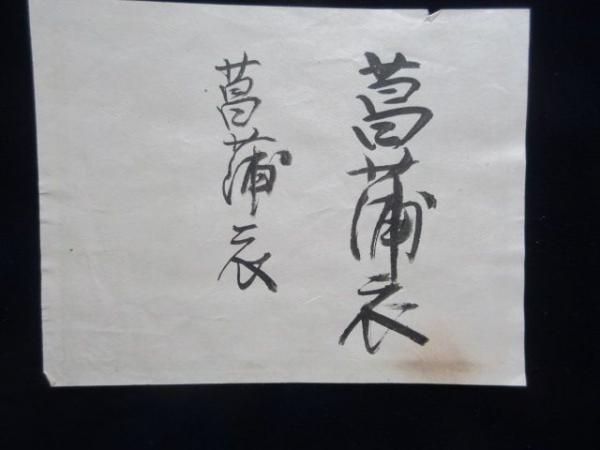 菖蒲衣
菖蒲衣